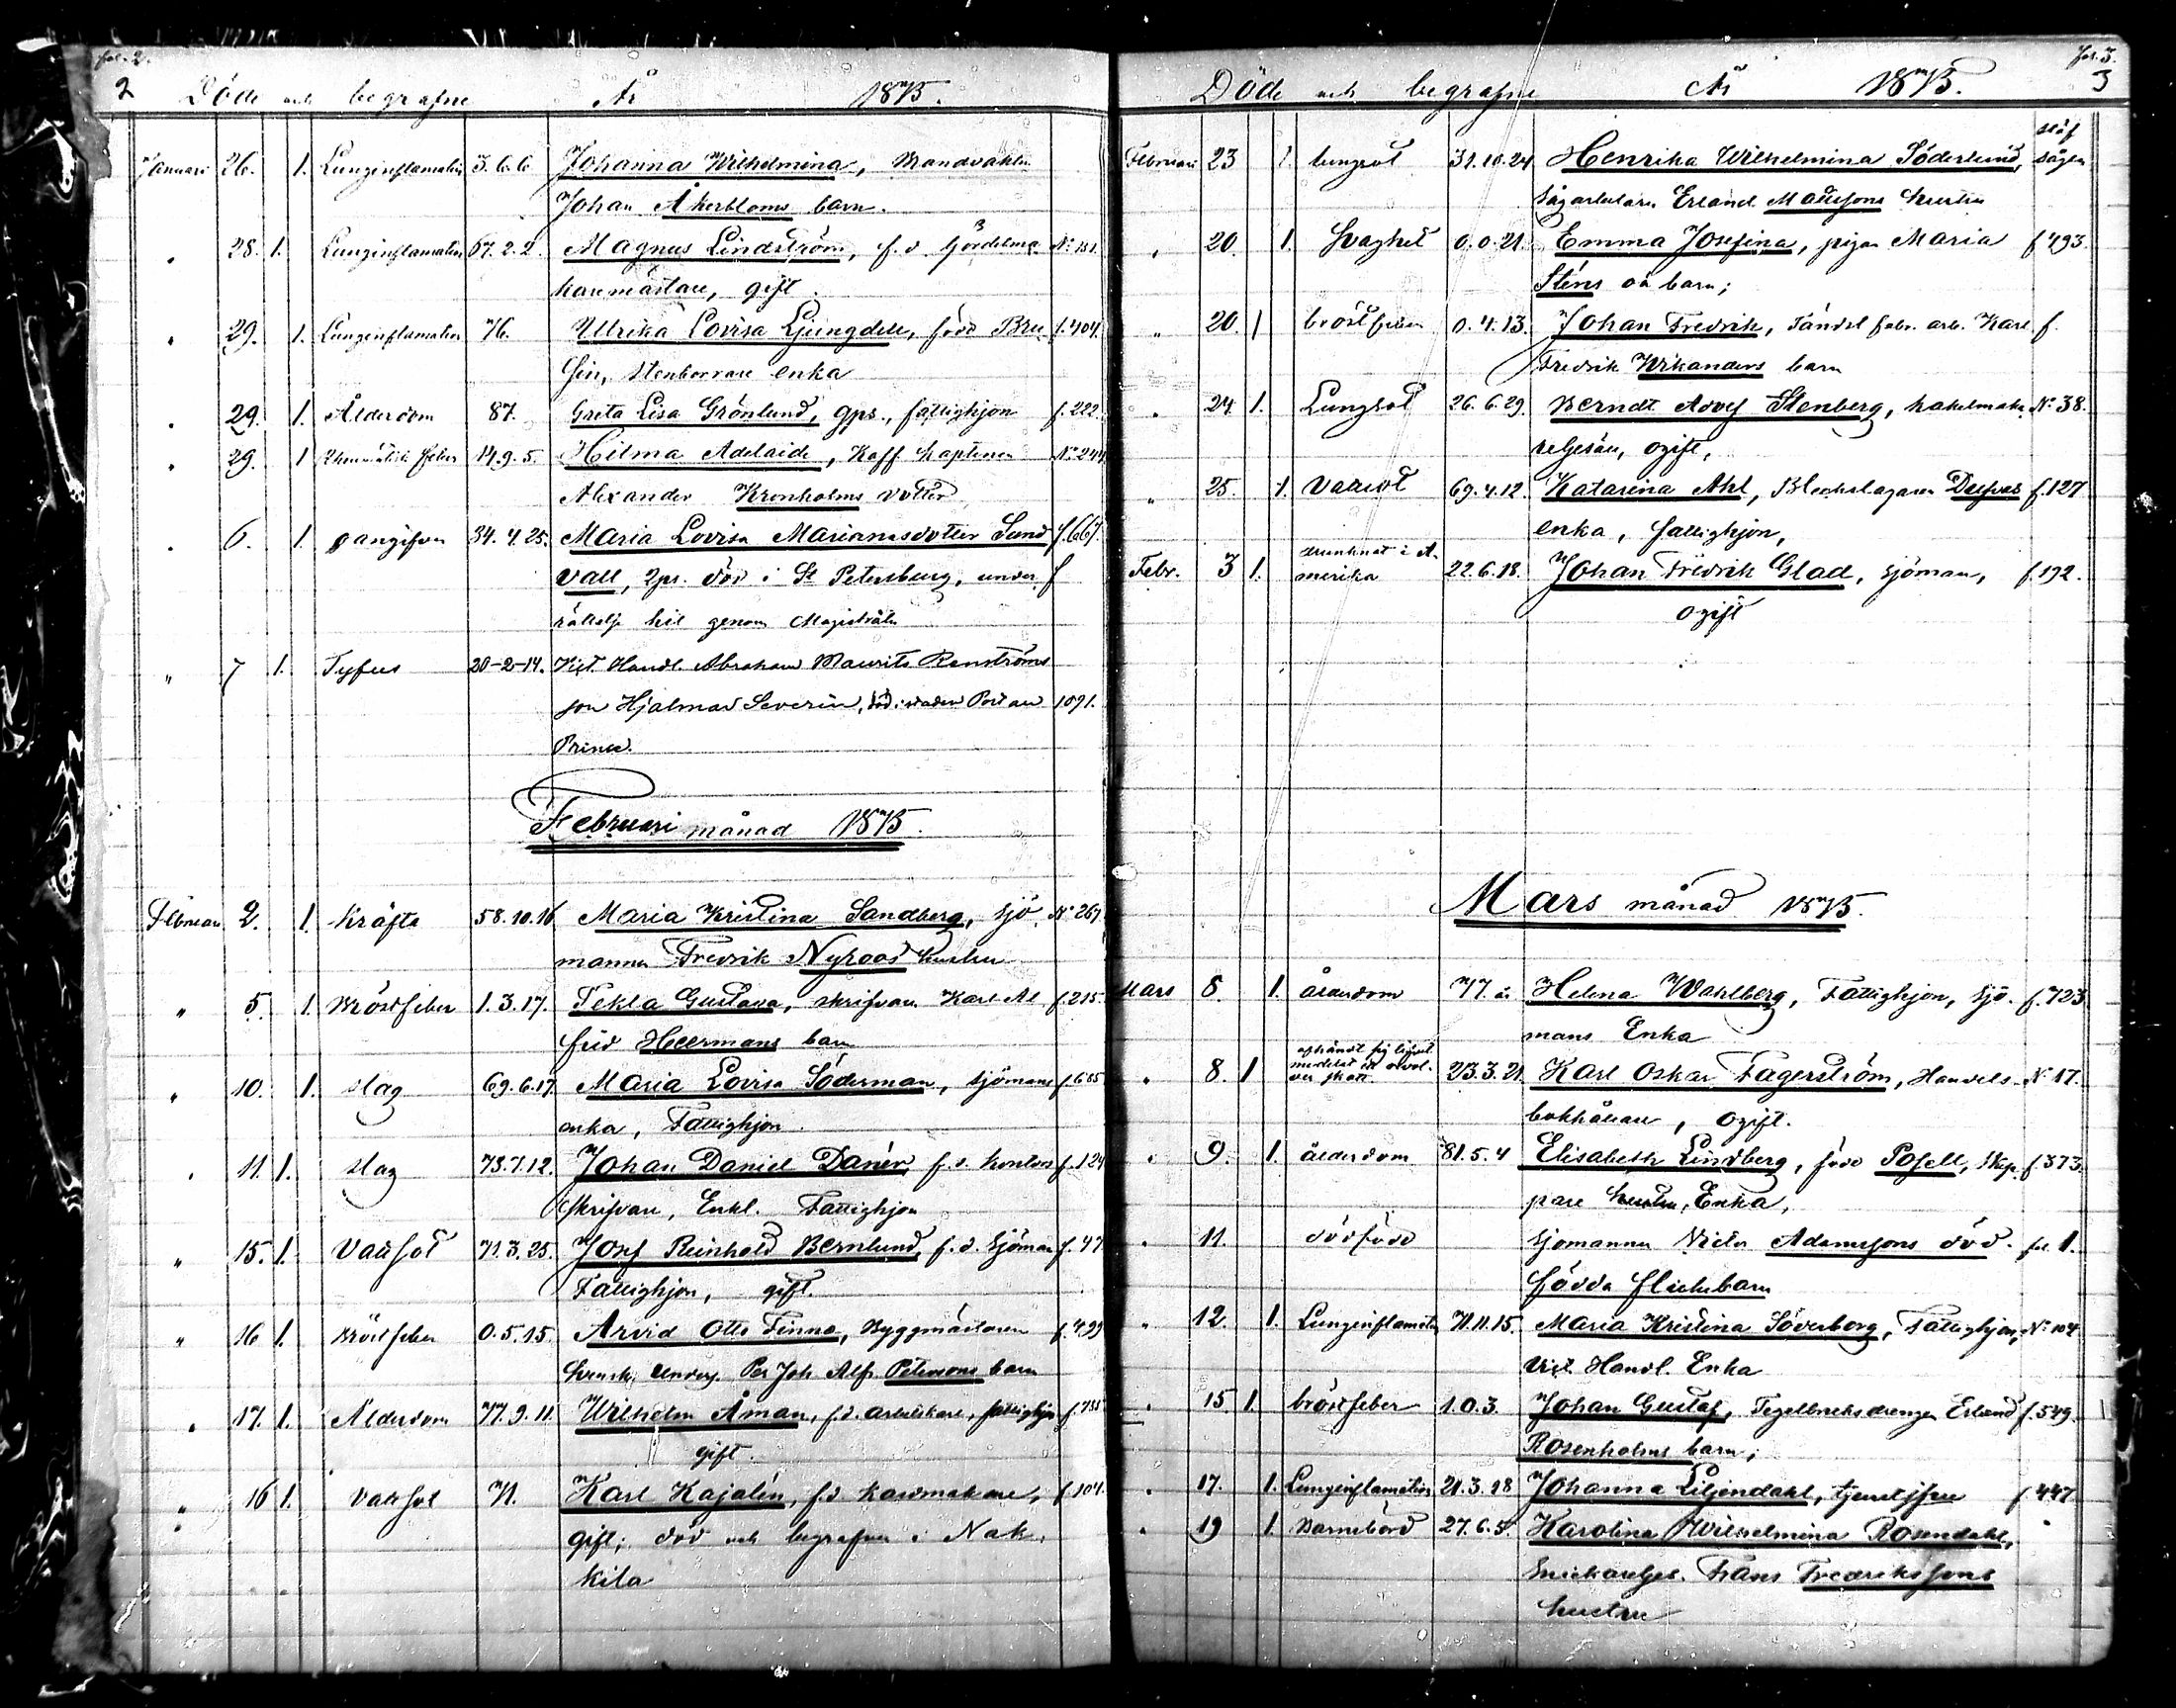 fol. 2.
2 Döde och begrafne År 1875.
Januari 26. 1. Lunginflamation 3.6.6. Johanna Wilhelmina, Brandvakten
Johan Åkerbloms barn.
" 28. 1. Lunginflamation 67.2.2. Magnus Lindström, f.d. Gördelma- No 131.
karemästare, gift.
" 29. 1. Lunginflamation 76. Ulrika Lovisa Ljungdell, född Bru- f. 404.
sin, stenborrare enka
" 29. 1. Ålderdom 87. Greta Lisa Grönlund, gps., fattighjon f. 222.
" 29. 1 Rheumatisk feber 14.9.5. Hilma Adelaide, Koff. Kaptenen No 244
Alexander Kronholms dotter
" 6. 1. ej angifven 34.4.25. Maria Lovisa Mariansdotter Sund f. 667.
vall, 2ps. död i St Petersburg, under f
rättelse hit genom Magistraten
" 7 1. Tyfus 20-2-14. Vict. Handl. Abraham Maurits Renströms
son Hjalmar Severin, död i staden Port au 1091.
Prince.
Februari månad 1875.
Februari 2. 1. Kräfta 58.10.16 Maria Kristina Sandberg, sjö- No 267
mannen Fredrik Nyroos hustru
" 5. 1. Bröstfeber 1.3.17. Tekla Gustava, skrifvaren Karl Al f. 215.
frid Heermans barn
" 10. 1. slag 69.6.17. Maria Lovisa Söderman, sjömans f. 685
enka, Fattighjon.
" 11. 1. slag 73.7.12. Johan Daniel Danér, f.d. kontors f. 124
skrifvare, Enkl. Fattighjon
" 15. 1. Vattsot 71.3.25. Josef Reinhold Bernlund, f.d. Sjöman f. 47
Fattighjon, gift.
" 16 1. Bröstfeber 0.5.15. Arvid Otto Finno, Byggmästaren f. 499
Svensk. Unders. Per Joh. Alfr. Petersons barn
" 17. 1. Ålderdom 77.9.11. Wilhelm Åman, f.d. arbetskarl, fattighjon f. 738
gift.
" 16 1. Vattsot 71. Karl Kajalén, f.d. kardmakare, f. 104.
gift; död och begrafven i Nak-
kila
fol. 3.
Döde och begrafne År 1875. 3
slåf
Februari 23 1. lungsot 31.10.24 Henrika Wilhelmina Söderlund, sågen
Sågarbetaren Erland Mattssons hustru
" 20. 1. Svaghet 0.0.21. Emma Josefina, pigan Maria f 493.
Sténs oä barn;
" 20. 1 bröstfeber 0.4.13. Johan Fredrik, Tändst. fabr. arb. Karl f.
Fredrik Wikanders barn
" 24. 1. Lungsot 26.6.29. Berndt Adolf Stenberg, kakelmaka- No 38.
regesäll, ogift,
" 25. 1. Vattsot 69.4.12. Katarina Ahl, Bleckslagaren f. 127
enka, fattighjon,
drunknat i A-
Febr. 3 1. merika 22.6.18. Johan Fredrik Glad, sjöman, f. 192.
ogift
Mars månad 1875.
Mars 8. 1. ålderdom 77. år Helena Wahlberg, Fattighjon, sjö- f. 723
mans Enka
afhändt sig lifvet
medelst ett revol-
" 8. 1 ver skott. 23.3.21. Karl Oskar Fagerström, Handels- No 17.
bokhållare, ogift.
" 9. 1. ålderdom 81.5.4 Elisabeth Lindberg, född Posell, Skep- f. 373.
pare hustru, Enka,
" 11. dödfödd Sjömannen Victor Adamssons död- fol 1.
födda flickebarn
" 12. 1. Lunginflamation 71.11.15. Maria Kristina Söderborg, Fattighjon, No 104
Vict. Handl. Enka
" 15 1. bröstfeber 1.0.3. Johan Gustaf, Tegelbruksdrengen Erland f. 549.
Rosenholms barn;
" 17. 1. Lunginflamation 21.3.18 Johanna Liljendahl, tjenstjfru f. 447
" 19 1. Barnsbörd 27.6.5. Karolina Wilhelmina Rosendahl, "
Snickareges. Frans Fredrikssons
hustru